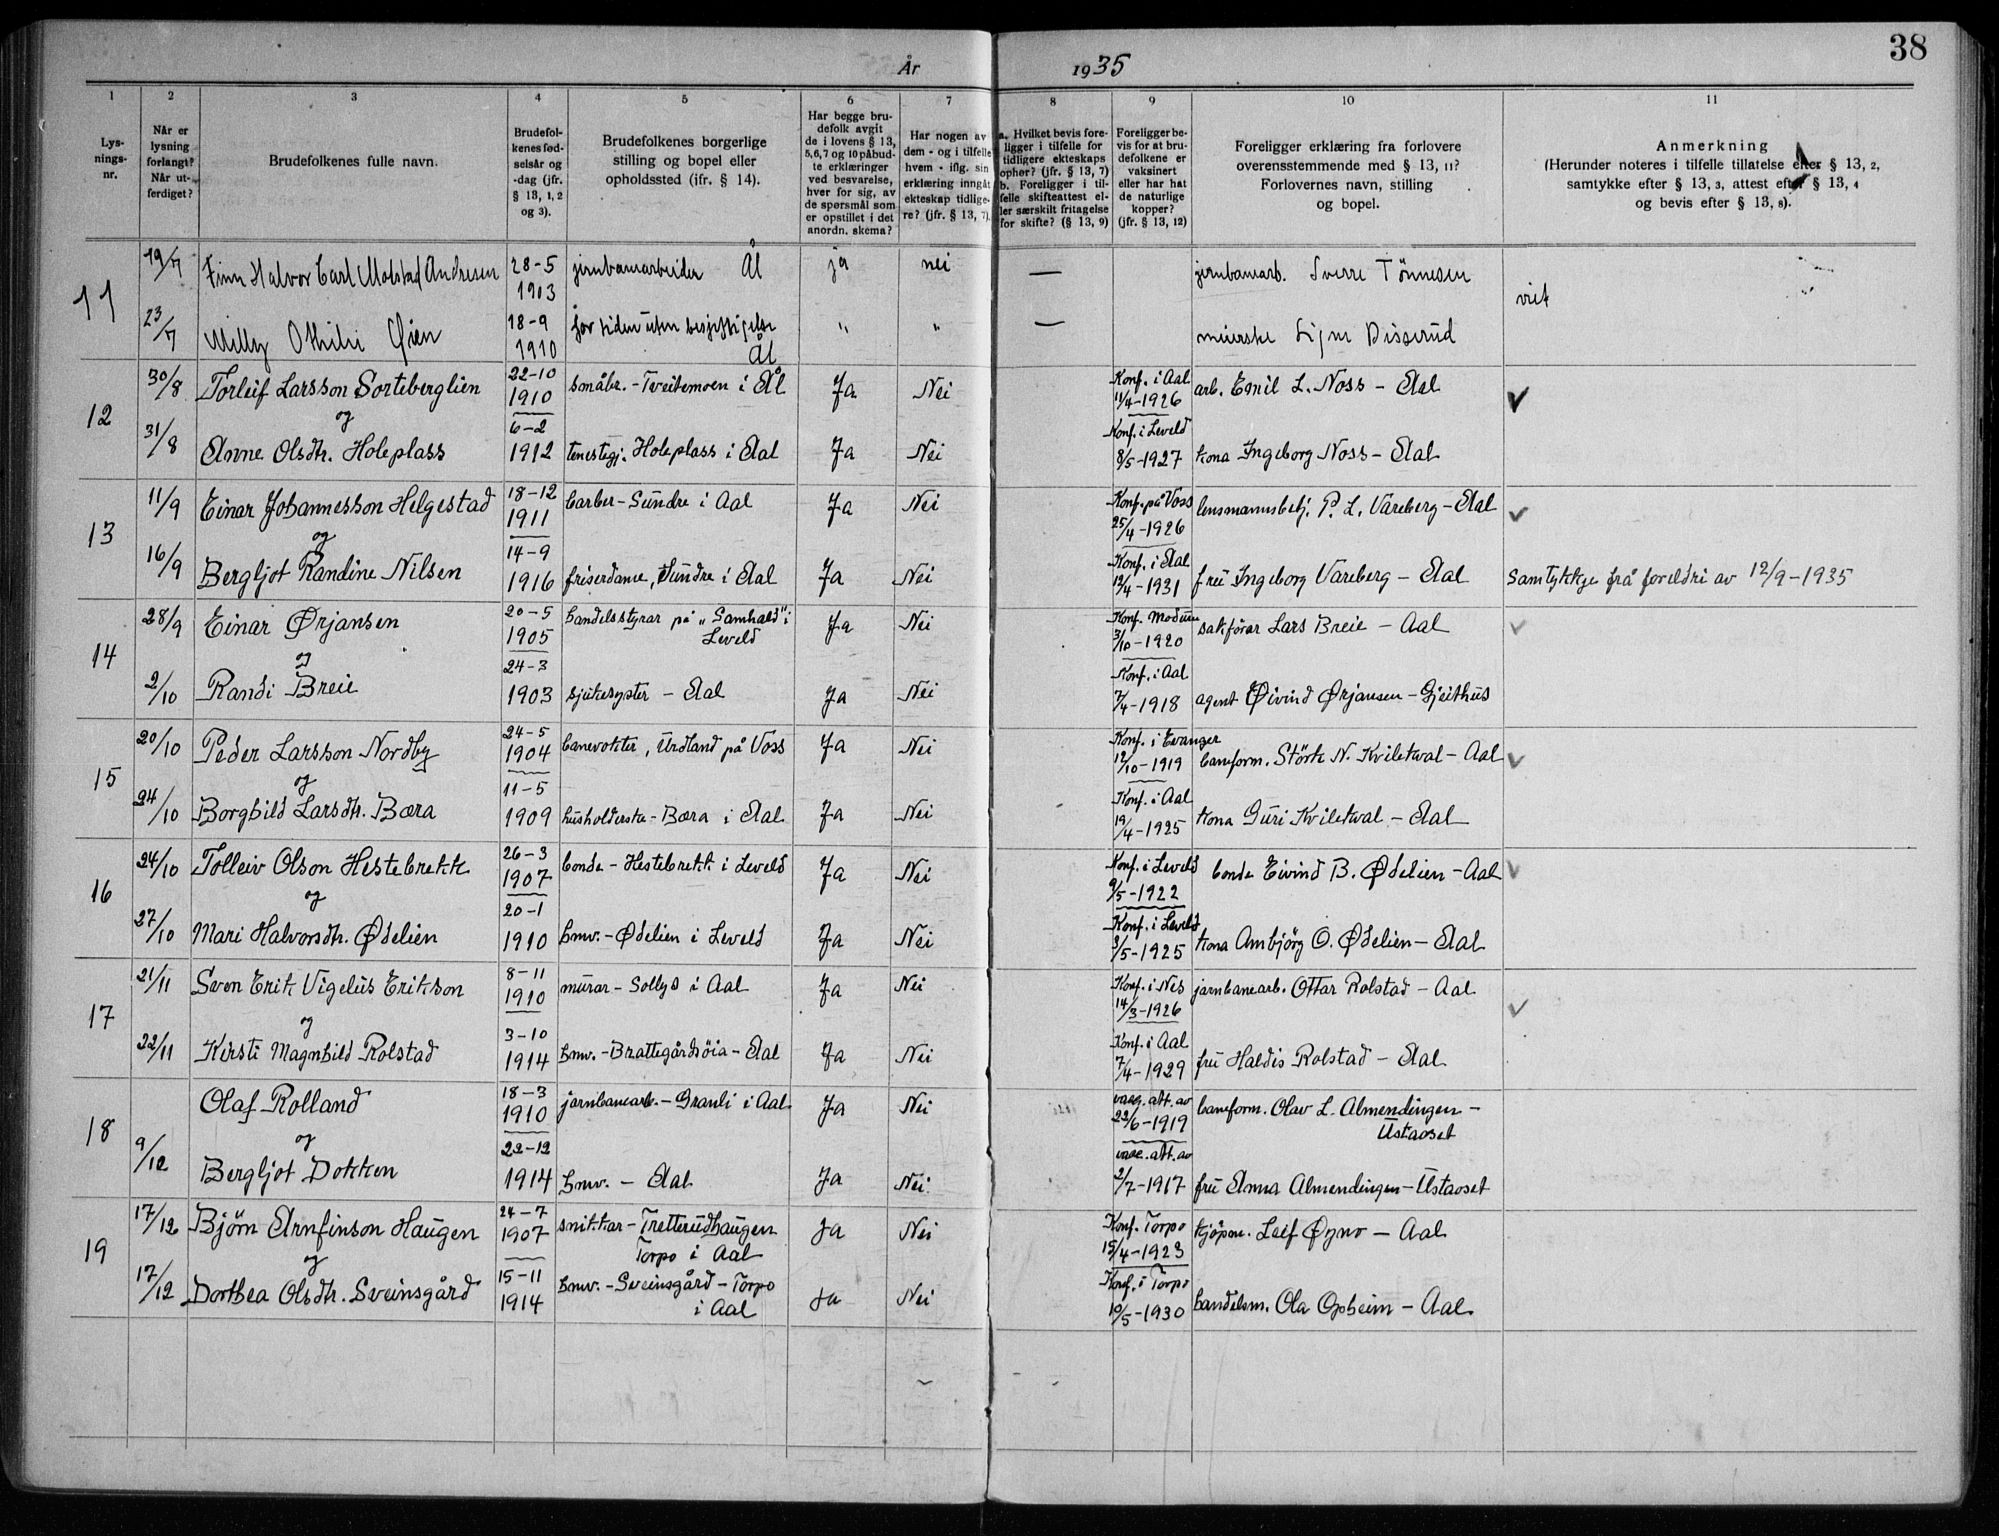 38
År 1935
1 2 3 4 5 6 7 8 9 10 11
Lys-
nings-
nr.
Når er
lysning
forlangt?
Når ut-
ferdiget?
Brudefolkenes fulle navn.
Brudefol-
kenes fød-
selsår og
-dag (jfr.
§ 13, 1, 2
og 3).
Brudefolkenes borgerlige
stilling og bopel eller
opholdssted (ifr. § 14).
Har begge bru-
defolk avgit
de i lovens § 13,
5, 6, 7 og 10 påbud-
te erklæringer
ved besvarelse,
hver for sig, av
de spørsmål som
er opstillet i det
anordn. skema?
Har nogen av
dem - og i tilfelle
hvem - iflg. sin
erklæring inngåt
ekteskap tidlige-
re? (jfr. § 13, 7).
a. Hvilket bevis fore-
ligger i tilfelle for
tidligere ekteskaps
ophør? (jfr. § 13, 7)
b. Foreligger i til-
felle skifteattest el-
ler særskilt fritagelse
for skifte? (§ 13, 9)
Foreligger be-
vis for at bru-
defolkene er
vaksinert
eller har hat
de naturlige
kopper?
(jfr. § 13, 12)
Foreligger erklæring fra forlovere
overensstemmende med § 13, 11?
Forlovernes navn, stilling
og bopel.
Anmerkning
(Herunder noteres i tilfelle tillatelse efter § 13, 2,
samtykke efter § 13, 3, attest efter § 13, 4
og bevis efter § 13, 8).
11
19/7 Finn Halvor Carl Molstad Andresen 28-5 1903 jernbanearbeider Ål ja nei — jernbanearb. Sverre Tønnesen
23/7 Milly Othilie Øien 18-9 1910 for tiden uten besjeftigelse Ål " " — meierske Signe Disserud
viet
12
30/8 Torleif Larsson Sorteberglien 22-10 1910 småbr. - Tveitemoen i Ål Ja Nei Konf. i Aal 11/4-1926 arb. Emil L. Noss - Aal ✓
og
31/8 Anne Olsdtr. Holeplass 6-2 1912 tenestegj. Holeplass i Aal Ja Nei Konf. i Leveld 8/5-1927 kona Ingeborg Noss - Aal
13
11/9 Einar Johannesson Helgestad 18-12 1911 barber - Sundre i Aal Ja Nei Konf. på Voss 25/4-1926 lensmannsbetj. P. L. Vareberg - Aal ✓
og
16/9 Bergljot Randine Nilsen 14-9 1916 friserdame, Sundre i Aal Ja Nei Konf. i Aal 12/4-1931 frü Ingeborg Vareberg - Aal Samtykkje frå foreldri av 12/9-1935
14
28/9 Einar Ørjansen 20-5 1905 handelsstyrar på "Samhald" i Leveld Ja Nei Konf. Modum 3/10-1920 sakförar Lars Breie - Aal ✓
og
2/10 Randi Breie 24-3 1903 sjukesyster - Aal Ja Nei Konf. i Aal 7/4-1918 agent Øivind Ørjansen - Gjeithus
15
20/10 Peder Larsson Nordby 24-5 1904 banevokter, Urdland på Voss Ja Nei Konf. i Evanger 12/10-1919 baneform. Störk N. Kviletval - Aal ✓
og
24/10 Borghild Larsdtr. Bæra 11-5 1909 husholderska - Bæra i Aal Ja Nei Konf. i Aal 19/4-1925 kona Guri Kviletval - Aal
16
24/10 Tolleiv Olson Hestebrekk 26-3 1907 bonde - Hestebrekk i Leveld Ja Nei Konf. i Leveld 9/5-1922 bonde Eivind B. Ødelien - Aal ✓
og
27/10 Mari Halvorsdtr. Ødelien 20-1 1910 hmv. - Ødelien i Leveld Ja Nei Konf. i Leveld 3/5-1925 kona Ambjörg O. Ødelien - Aal
17
21/11 Sven Erik Vigelius Erikson 8-11 1910 murar - Sollys i Aal Ja Nei Konf. i Nes 14/3-1926 jarnbanearb. Ottar Rolstad - Aal ✓
og
22/11 Kirsti Magnhild Rolstad 3-10 1914 hmv. - Brattegårdsöia - Aal Ja Nei Konf. i Aal 7/4-1929 frü Haldis Rolstad - Aal
18
Olaf Rolland 18-3 1910 jarnbanearb. - Granli i Aal Ja Nei vacc. att. av 22/6-1919 baneform. Olav L. Almendingen - Ustaoset
og
9/12 Bergljot Dokken 22-12 1914 hmv. - Aal Ja Nei vacc. att. av 2/7-1917 frü Anna Almendingen - Ustaoset
19
17/12 Bjørn Arnfinson Haugen 24-7 1907 snikkar - Tretterudhaugen Torpo i Aal Ja Nei Konf. Torpo 15/4-1923 kjöpm. Leif Øyno - Aal
og
17/12 Dorthea Olsdtr. Sveinsgård 15-11 1914 hmv. - Sveinsgård - Torpo i Aal Ja Nei Konf. i Torpo 10/5-1930 handelsm. Ola Opheim - Aal